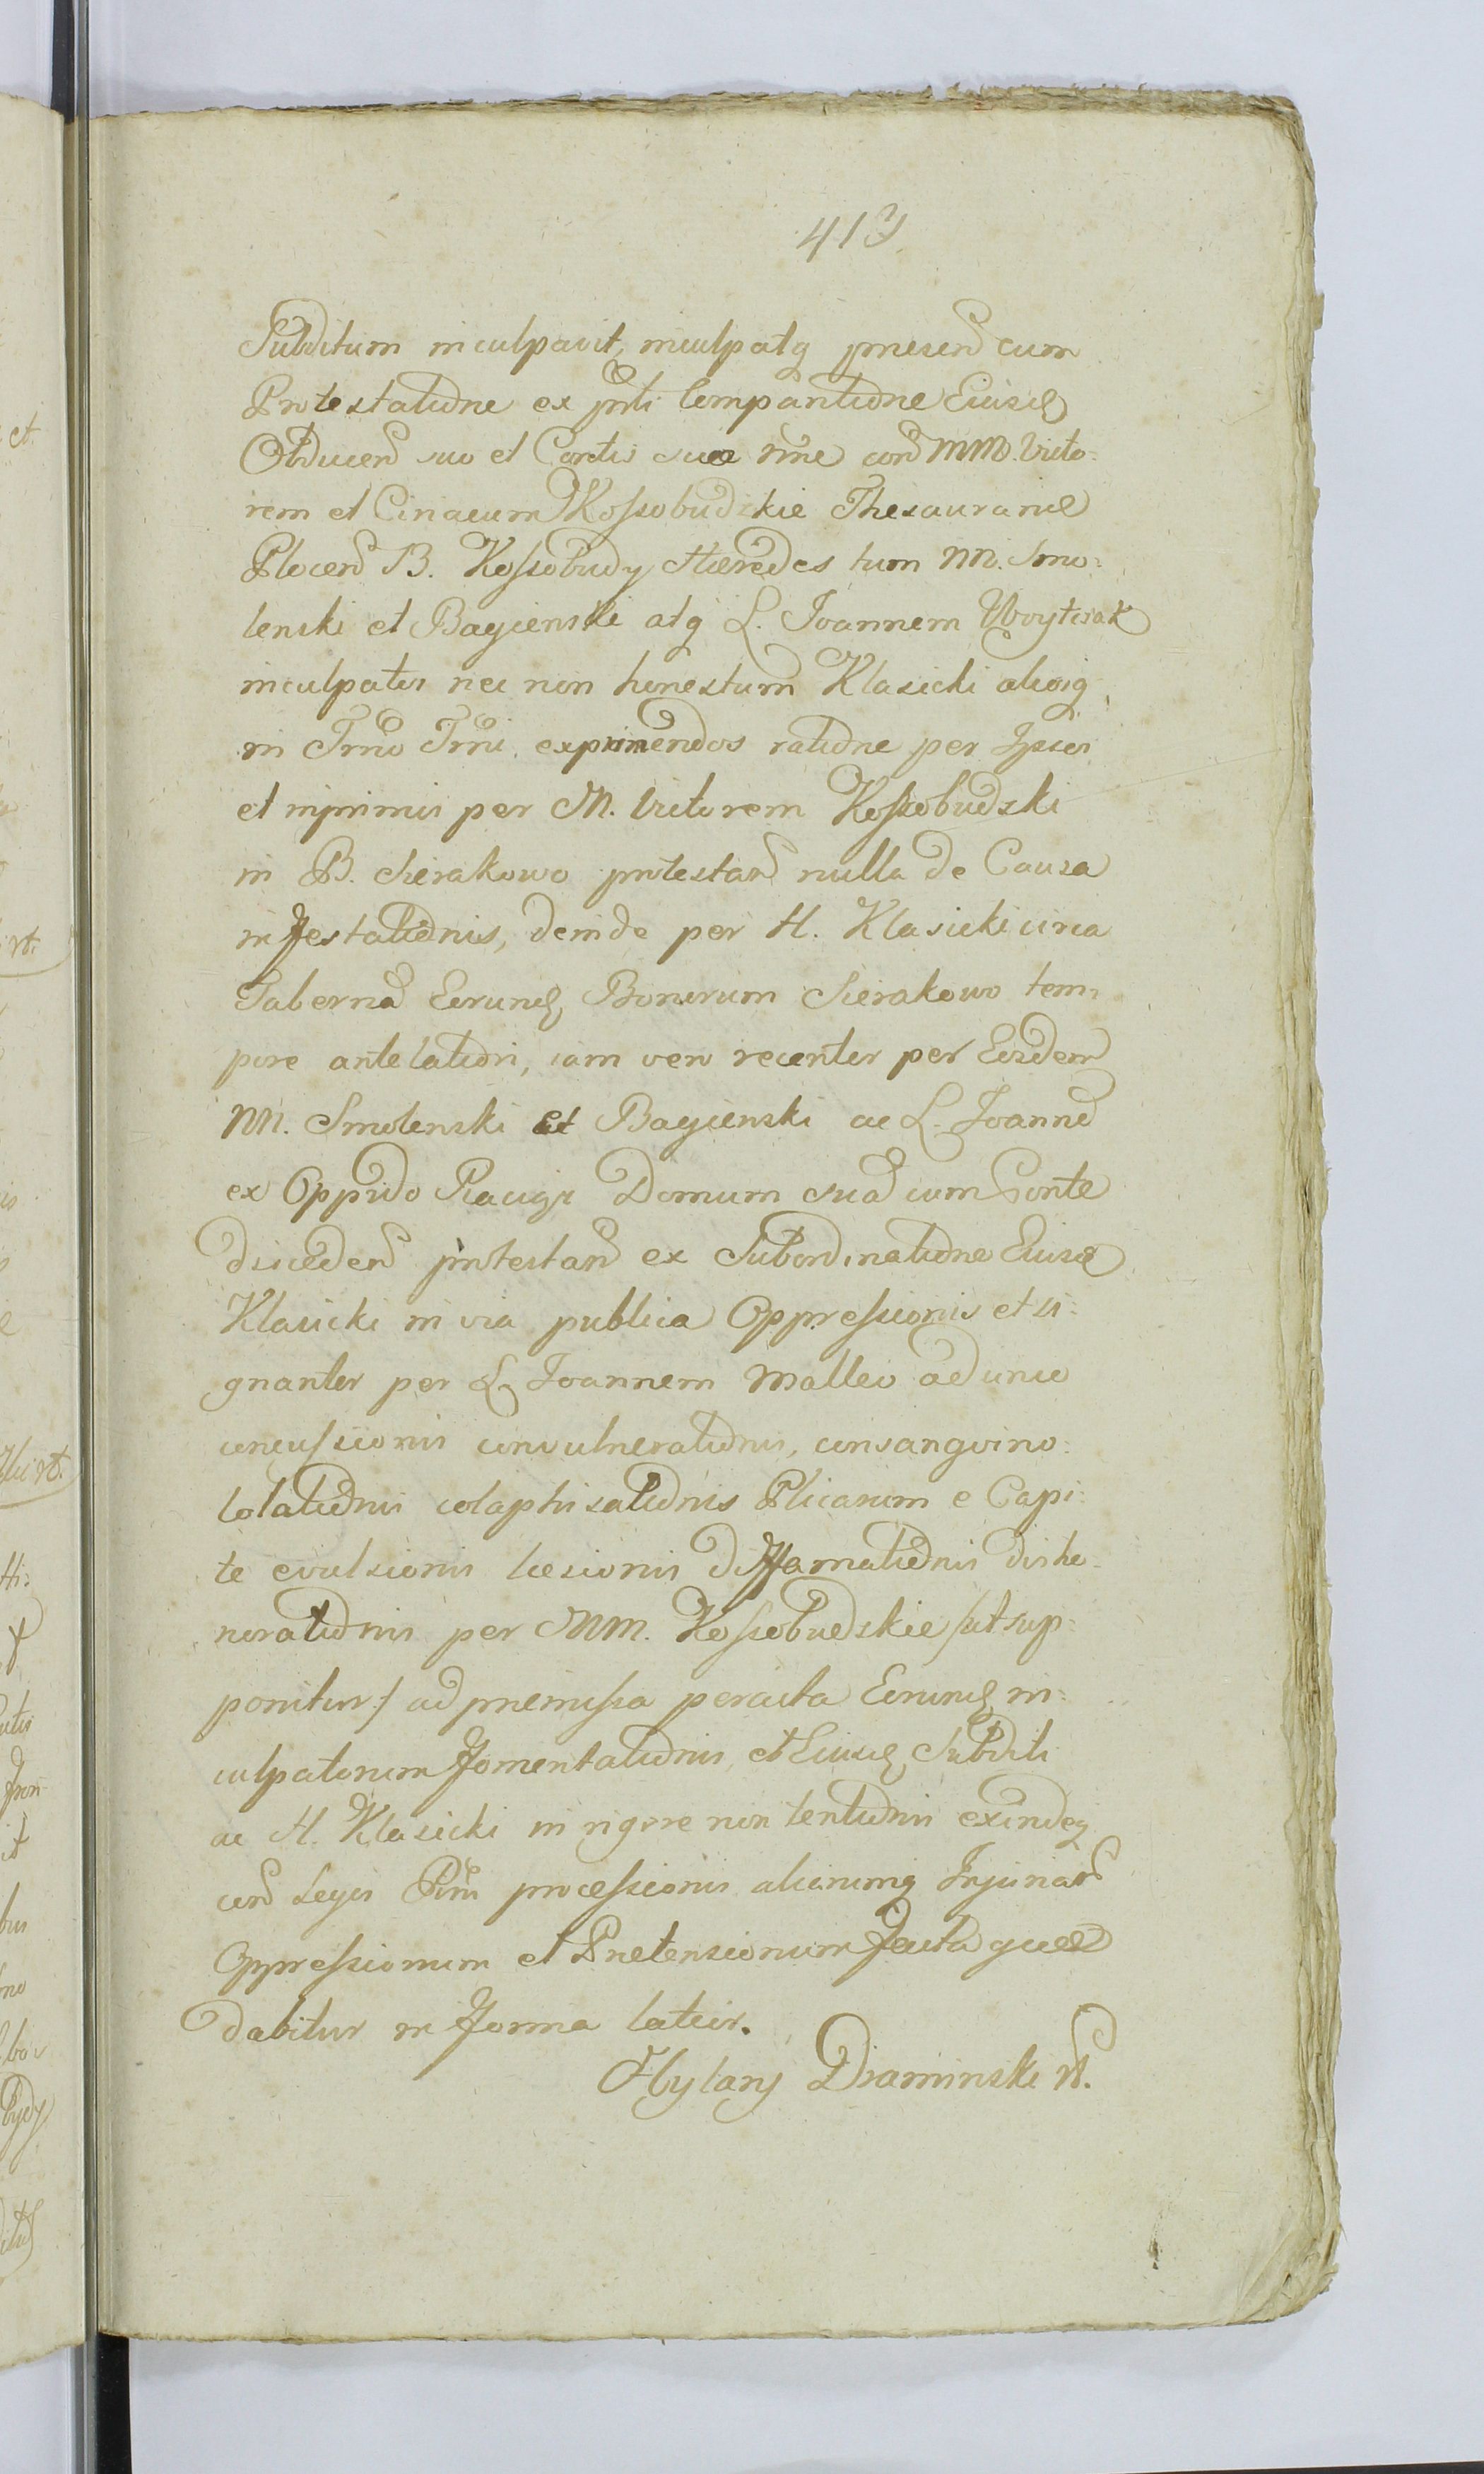 413
Subditum inculpavit, inculpatq presen cum
Protestatione ex pnti Comparitione Eiusd
Obducen suo et Contis suæ nne con MM. Victo:
rem et Ciriacum Kossobudzkie Thesauranid
Plocen B. Kossobudy Hæredes tum M. Smo:
lenski et Bagienski atq L. Joannem Woytczak
inculpatos nec non honestum Klasicki aliosq
in Trno Trni exprimendos ratione per Ipsos
et inprimis per M. Victorem Kossobudzki
in B. Sierakowo protestan nulla de Causa
infestationis, deinde per H. Klasicki circa
Taberna Eorund Bonorum Sierakowo tem:
pore antelatiori, iam vero recenter per Eosdem
M. Smolenski et Bagienski ac L. Joanne
ex Oppido Raciąż Domum sua cum Conte
disceden protestan ex Subordinatione Eiusd
Klasicki in via publica Oppressionis et si:
gnanter per L. Joannem Malleo ad unco
concussionis convulnerationis, consangvino:
lolationis colaphisationis Plicarum e Capi:
te evulsionis læsionis diffamationis disho:
norationis per MM. Kossobudzkie /ut sup:
ponitur:/ ad præmissa peracta Eorund in:
culpatorum fomentationis, et Eiusd Subditi
ac H. Klasicki in rigore non tentionis exindeq
con Leges Rni processionis aliarumq Injuriar
Oppressionum et Prætensionum facta quæ
dabitur in forma latior.
Hylary Dramiński